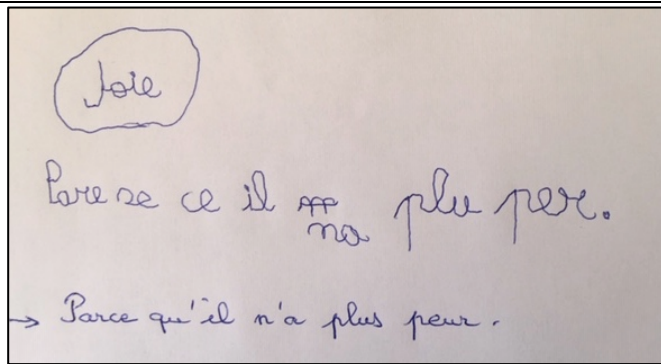 Joie
Parese ce il na plu per.
→ Parce qu'il n'a plus peur.